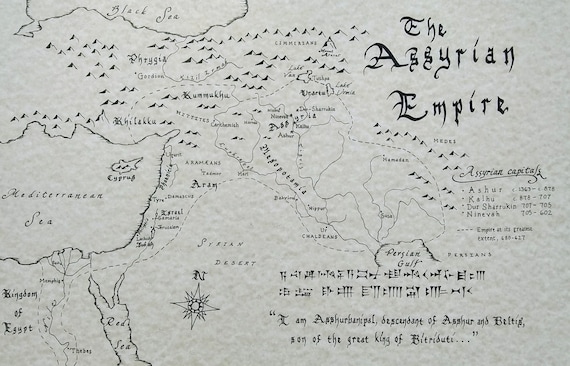 The
Assyrian
Empire
Black Sea
CIMMERIANS
Phrygia
Gordion
Kizil Irmak
Lake Van
Tushpa
Urartu
Lake Urmia
Kummukhu
Khilakku
HITTITES
Carchemish
Harran
Dur Sharrukin
Nineveh
Assyria
Kalhu
Ashur
MEDES
Hamadan
Assyrian capitals
Ashur c 1363 - c 878
Kalhu c 878 - 707
Dur Sharrukin 707 - 705
Ninevah 705 - 602
Empire at its greatest
extent, 680-627
Ugarit
ARAMEANS
Tadmor
Euphrates
Mari
Mesopotamia
Cyprus
Phoenicia
Aram
Mediterranean
Sea
Tyre
Damascus
Israel
Samaria
Jerusalem
Judah
Babylon
Nippur
Susa
Ur
CHALDEANS
SYRIAN
DESERT
Persian
Gulf
PERSIANS
Memphis
N
Kingdom
of
Egypt
Red
Sea
Thebes
"I am Asshurbanipal, descendant of Asshur and Beltis,
son of the great king of Bitriduti..."